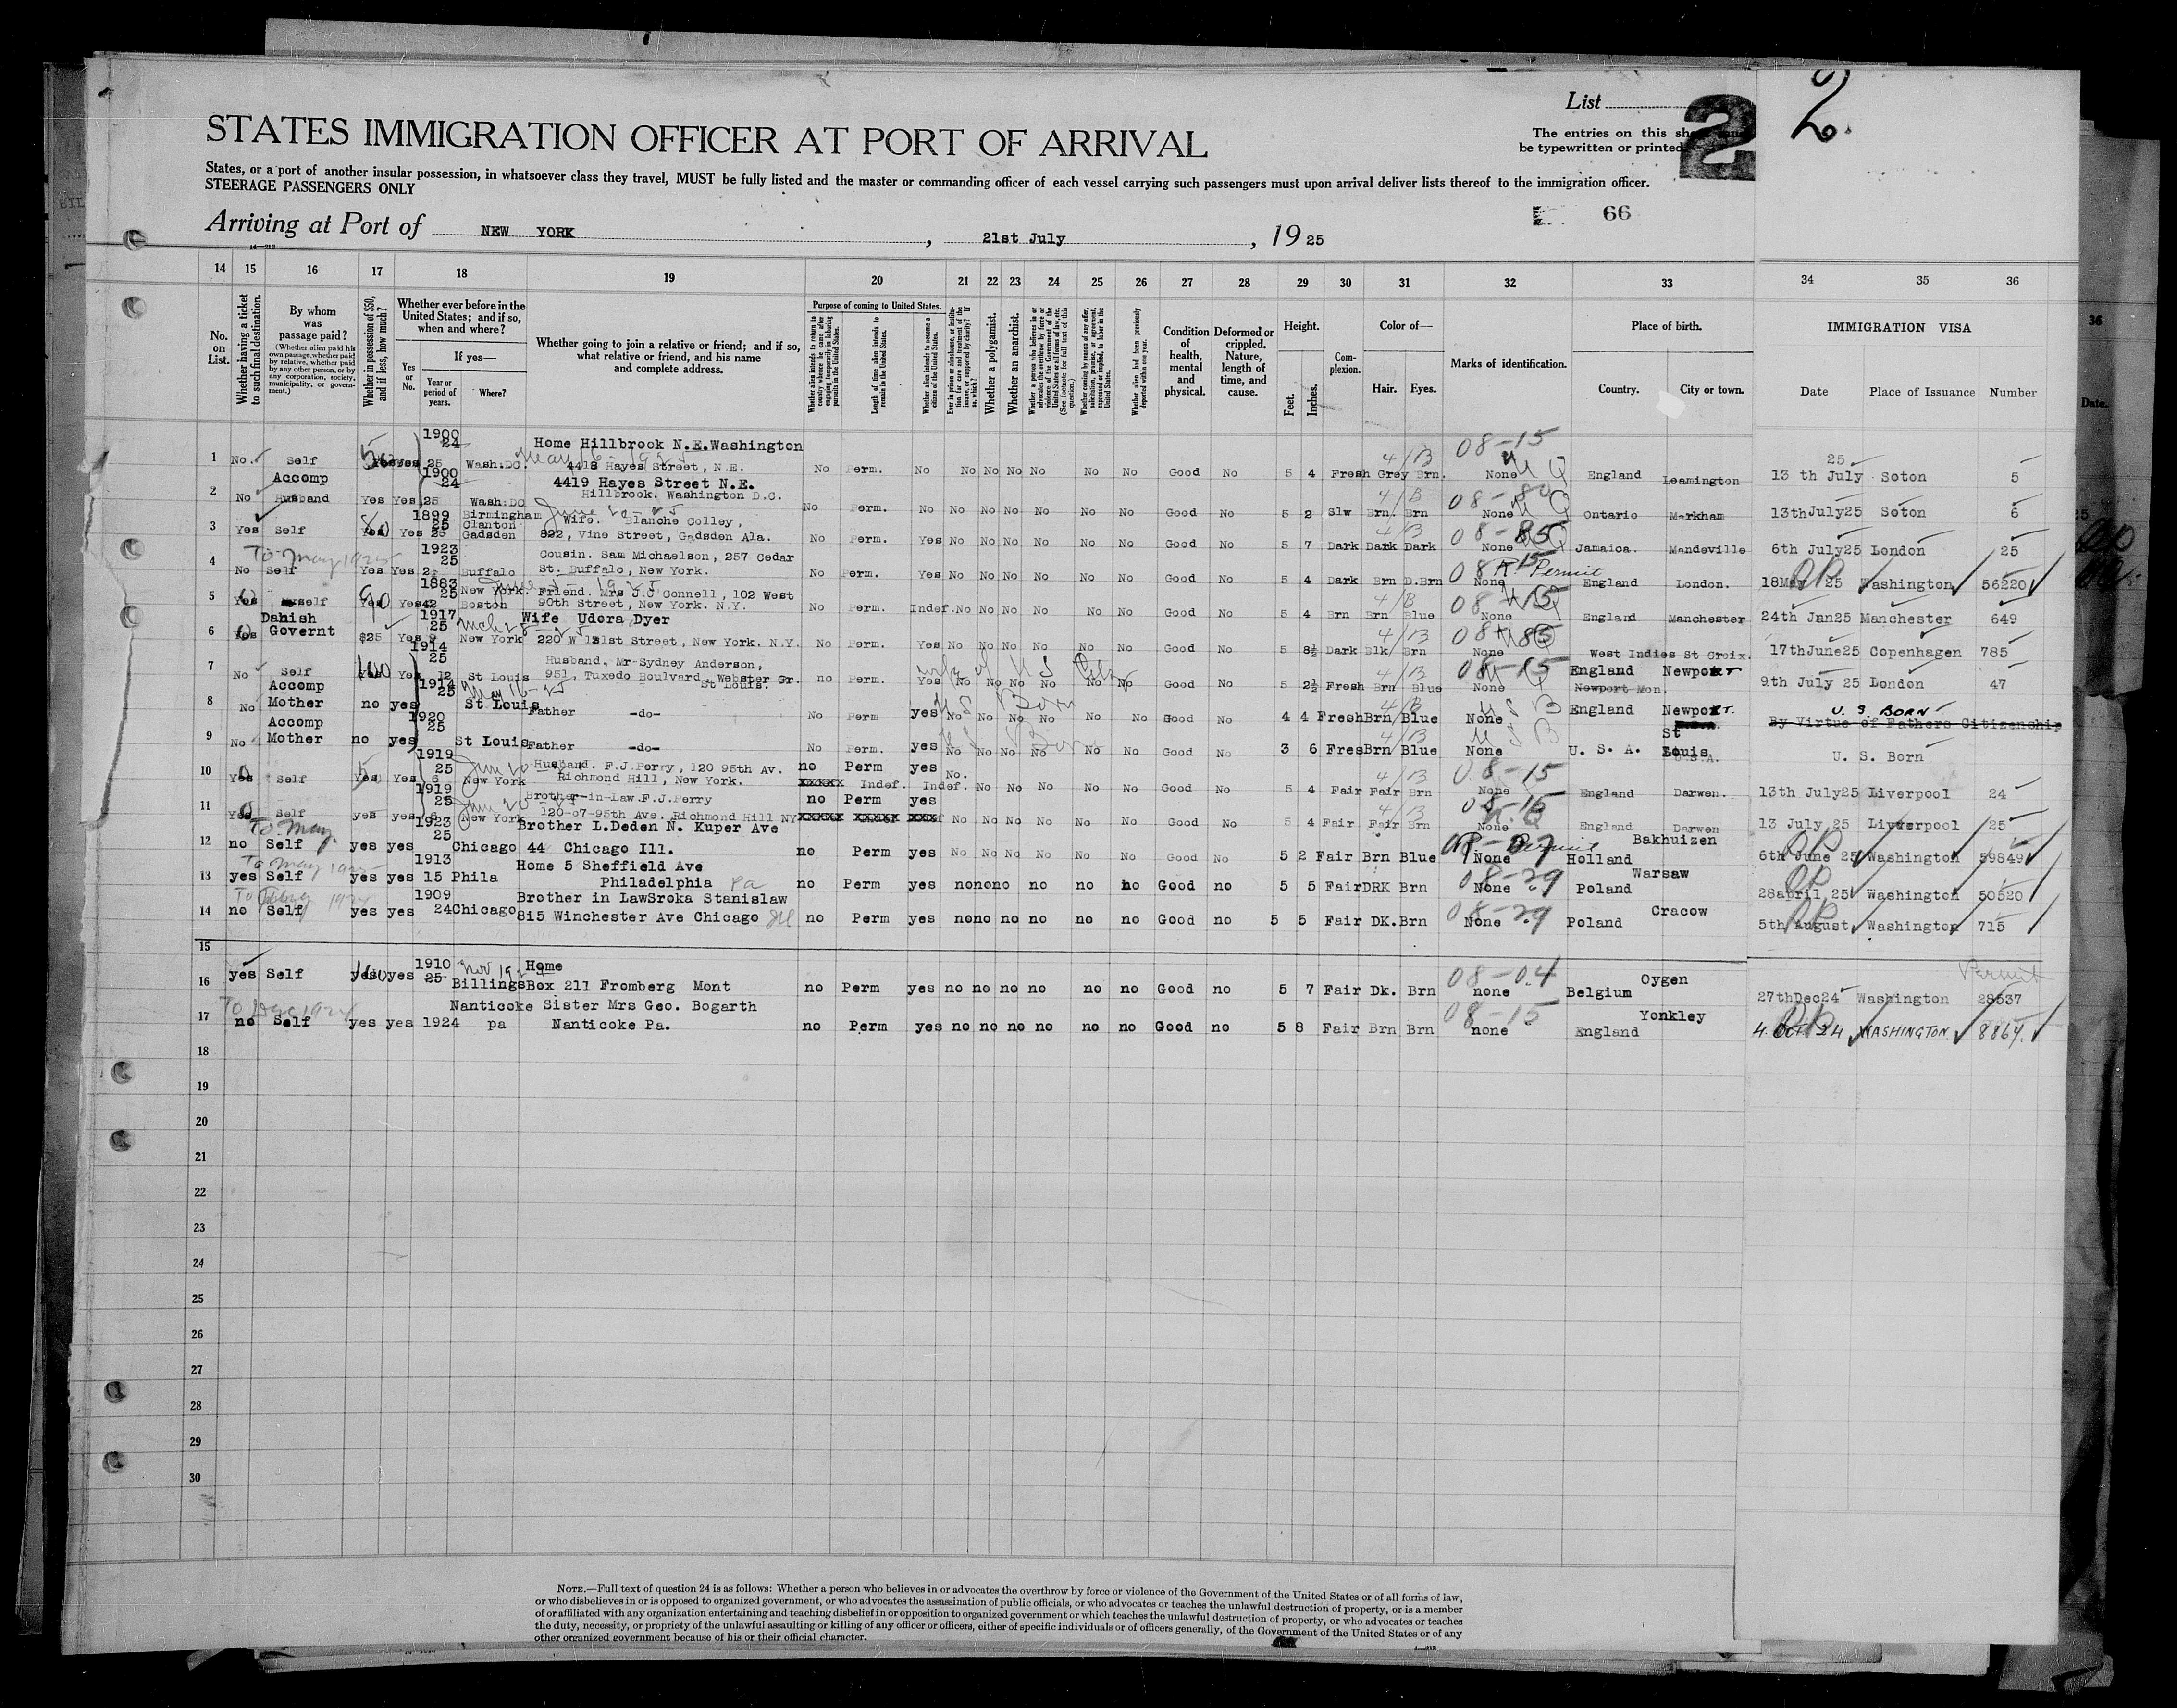 List
2
2
STATES IMMIGRATION OFFICER AT PORT OF ARRIVAL
The entries on this
be typewritten or printed
States, or a port of another insular possession, in whatsoever class they travel, MUST be fully listed and the master or commanding officer of each vessel carrying such passengers must upon arrival deliver lists thereof to the immigration officer.
STEERAGE PASSENGERS ONLY
66
Arriving at Port of NEW YORK, 21st July, 1925
14 15 16 17 18 19 20 21 22 23 24 25 26 27 28 29 30 31 32 33 34 35 36
No. on List.
Whether having a ticket to such final destination.
By whom was passage paid?
(Whether alien paid his own passage, whether paid by relative, whether paid by any other person, or by any corporation, society, municipality, or government.)
Whether in possession of $50, and if less, how much?
Whether ever before in the United States; and if so, when and where?
Yes or No.
If yes—
Year or period of years.
Where?
Whether going to join a relative or friend; and if so, what relative or friend, and his name and complete address.
Purpose of coming to United States.
Whether alien intends to return to country whence he came after engaging temporarily in laboring pursuits in the United States.
Length of time alien intends to remain in the United States.
Whether alien intends to become a citizen of the United States.
Ever in prison or almshouse, or institution for care and treatment of the insane, or supported by charity? If so, which?
Whether a polygamist.
Whether an anarchist.
Whether a person who believes in or advocates the overthrow by force or violence of the Government of the United States or all forms of law, etc. (See footnote for full text of this question.)
Whether coming by reason of any offer, solicitation, promise, or agreement, expressed or implied, to labor in the United States.
Whether alien had been previously deported within one year.
Condition of health, mental and physical.
Deformed or crippled. Nature, length of time, and cause.
Height.
Feet.
Inches.
Complexion.
Color of—
Hair.
Eyes.
Marks of identification.
Place of birth.
Country.
City or town.
IMMIGRATION VISA
Date
Place of Issuance
Number
36
Date.
1 No. Self Yes 1900 24 25 Wash:DC. Home Hillbrook N.E.Washington
4418 Hayes Street, N.E. No Perm. No No No No No No No Good No 5 4 Fresh Grey Brn. None 08-15 England Leamington 13 th July 25 Soton 5
2 No Accomp Husband Yes Yes 1900 24 25 Wash:DC 4419 Hayes Street N.E.
Hillbrook. Washington D.C. No Perm. No No No No No No No Good No 5 2 Slw Brn. Brn None Ontario Markham 13thJuly25 Soton 6
3 Yes Self Yes Yes 1899 25 25 Birmingham Clanton Gadsden Wife. Blanche Colley,
822, Vine Street, Gadsden Ala. No Perm. Yes No No No No No No Good No 5 7 Dark Dark Dark None 08-85 Jamaica. Mandeville 6th July25 London 25
4 No Self Yes Yes 1923 25 Buffalo Cousin. Sam Michaelson, 257 Cedar
St. Buffalo, New York. No Perm. Yes No No No No No No Good No 5 4 Dark Brn D.Brn None England London. 18May 25 Washington 56220
5 Yes self Yes Yes 1883 25 New York. Boston Friend. Mrs J.J Connell, 102 West
90th Street, New York. N.Y. No Perm. Indef. No No No No No No Good No 5 4 Brn Brn Blue None 08-15 England Manchester 24th Jan25 Manchester 649
6 Yes Danish Governt $25 Yes 1917 25 New York Wife Udora Dyer
220 W 131st Street, New York. N.Y. No Perm. Yes No No No No No No Good No 5 8½ Dark Blk Brn None West Indies St Croix. 17thJune25 Copenhagen 785
7 No Self Yes 1914 25 12 St Louis Husband, Mr Sydney Anderson,
951, Tuxedo Boulvard, Webster Gr. St Louis. no Perm. Yes No No No No No No Good No 5 2½ Fresh Brn Blue None 08-15 England Newport Newport Mon. 9th July 25 London 47
wife of U S Citz
8 No Accomp Mother no yes 1914 25 St Louis Father -do- No Perm yes No No No No No No Good No 4 4 Fresh Brn Blue None U S B England Newport U.S BORN
By Virtue of Fathers Citizenship
9 No Accomp Mother no yes 1920 25 St Louis Father -do- No Perm. yes No No No No No No Good No 3 6 Fres Brn Blue None U S B U. S. A. St Louis U. S. Born
10 Yes Self Yes Yes 1919 25 6 New York Husband. F.J.Perry, 120 95th Av.
Richmond Hill, New York. no Perm yes xxxxx Indef. Indef. No. No No No No No Good No 5 4 Fair Fair Brn None 08-15 England Darwen. 13th July25 Liverpool 24
11 Yes Self yes yes 1919 25 New York Brother-in-Law.F.J.Perry
120-07-95th Ave. Richmond Hill NY no Perm yes No No No No No No Good No 5 4 Fair Fair Brn None England Darwen 13 July 25 Liverpool 25
12 no Self yes yes 1923 25 Chicago Brother L.Deden N. Kuper Ave
44 Chicago Ill. no Perm yes No No No No No No Good No 5 2 Fair Brn Blue None Holland Bakhuizen 6th June 25 Washington 59849
13 yes Self yes yes 1913 15 Phila Home 5 Sheffield Ave
Philadelphia Pa no Perm yes no no no no no no Good no 5 5 Fair DRK Brn None 08-29 Poland Warsaw 28april 25 Washington 50520
14 no Self yes yes 1909 24 Chicago Brother in LawSroka Stanislaw
815 Winchester Ave Chicago Ill no Perm yes no no no no no no Good no 5 5 Fair DK. Brn None 08-29 Poland Cracow 5th August Washington 715
15
16 yes Self yes yes 1910 25 Nov 1924 Billings Home
Box 211 Fromberg Mont no Perm yes no no no no no no Good no 5 7 Fair Dk. Brn none 08-04 Belgium Oygen 27thDec24 Washington 28537 Permit
17 To Dec 1924 no Self yes yes 1924 Nanticoke pa Sister Mrs Geo. Bogarth
Nanticoke Pa. no Perm yes no no no no no no Good no 5 8 Fair Brn Brn none 08-15 England Yonkley 4. OCT 24 WASHINGTON. 8864.
18
19
20
21
22
23
24
25
26
27
28
29
30
NOTE.—Full text of question 24 is as follows: Whether a person who believes in or advocates the overthrow by force or violence of the Government of the United States or of all forms of law,
or who disbelieves in or is opposed to organized government, or who advocates the assassination of public officials, or who advocates or teaches the unlawful destruction of property, or is a member
of or affiliated with any organization entertaining and teaching disbelief in or opposition to organized government or which teaches the unlawful destruction of property, or who advocates or teaches
the duty, necessity, or propriety of the unlawful assaulting or killing of any officer or officers, either of specific individuals or of officers generally, of the Government of the United States or of any
other organized government because of his or their official character.